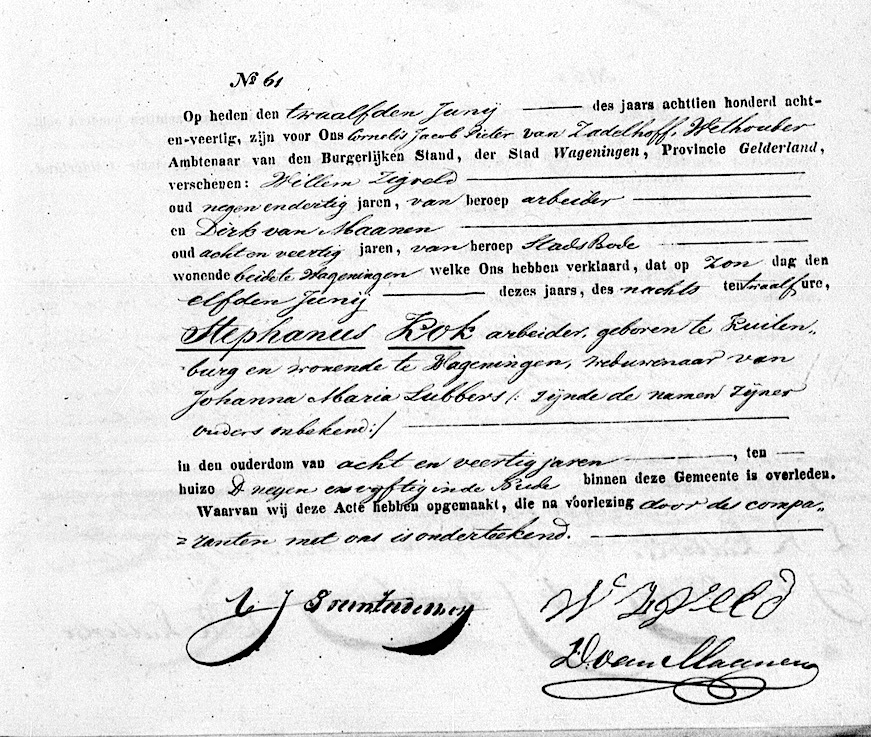 No 61
Op heden den twaalfden Junij des jaars achttien honderd acht-
en-veertig, zijn voor Ons Cornelis Jacob Pieter van Zadelhoff, Wethouder
Ambtenaar van den Burgerlijken Stand, der Stad Wageningen, Provincie Gelderland,
verschenen: Willem Zigveld
oud negenendertig jaren, van beroep arbeider
en Dirk van Maanen
oud acht en veertig jaren, van beroep StadsBode
wonende beide te Wageningen welke Ons hebben verklaard, dat op Zon dag den
elfden Junij dezes jaars, des nachts ten twaalf ure,
Stephanus Kok arbeider, geboren te Kuilen-
burg en wonende te Wageningen, weduwenaar van
Johanna Maria Lubbers /: zijnde de namen zijner
ouders onbekend :/
in den ouderdom van acht en veertig jaren, ten
huize D negen en vyftig in de binnen deze Gemeente is overleden.
Waarvan wij deze Acte hebben opgemaakt, die na voorlezing door des compa-
=ranten met ons is onderteekend.
D. van Maanen